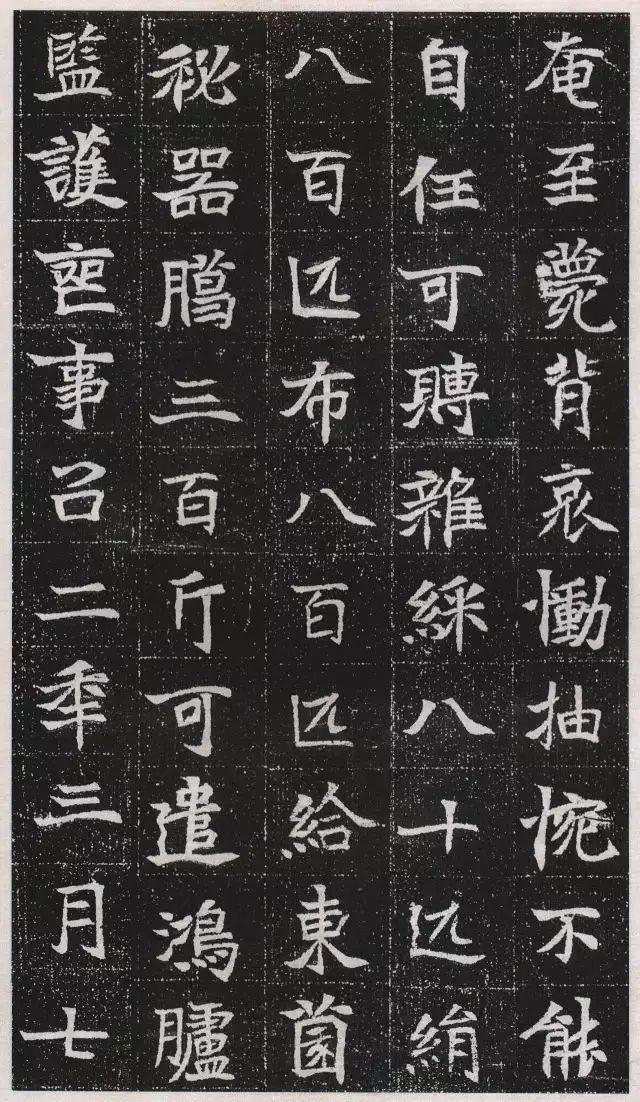 奄至薨背哀慟抽惋不能
自任可賻雜綵八十匹絹
八百匹布八百匹給東薗
祕器臈三百斤可遣鴻臚
監護喪事㠯二年三月七